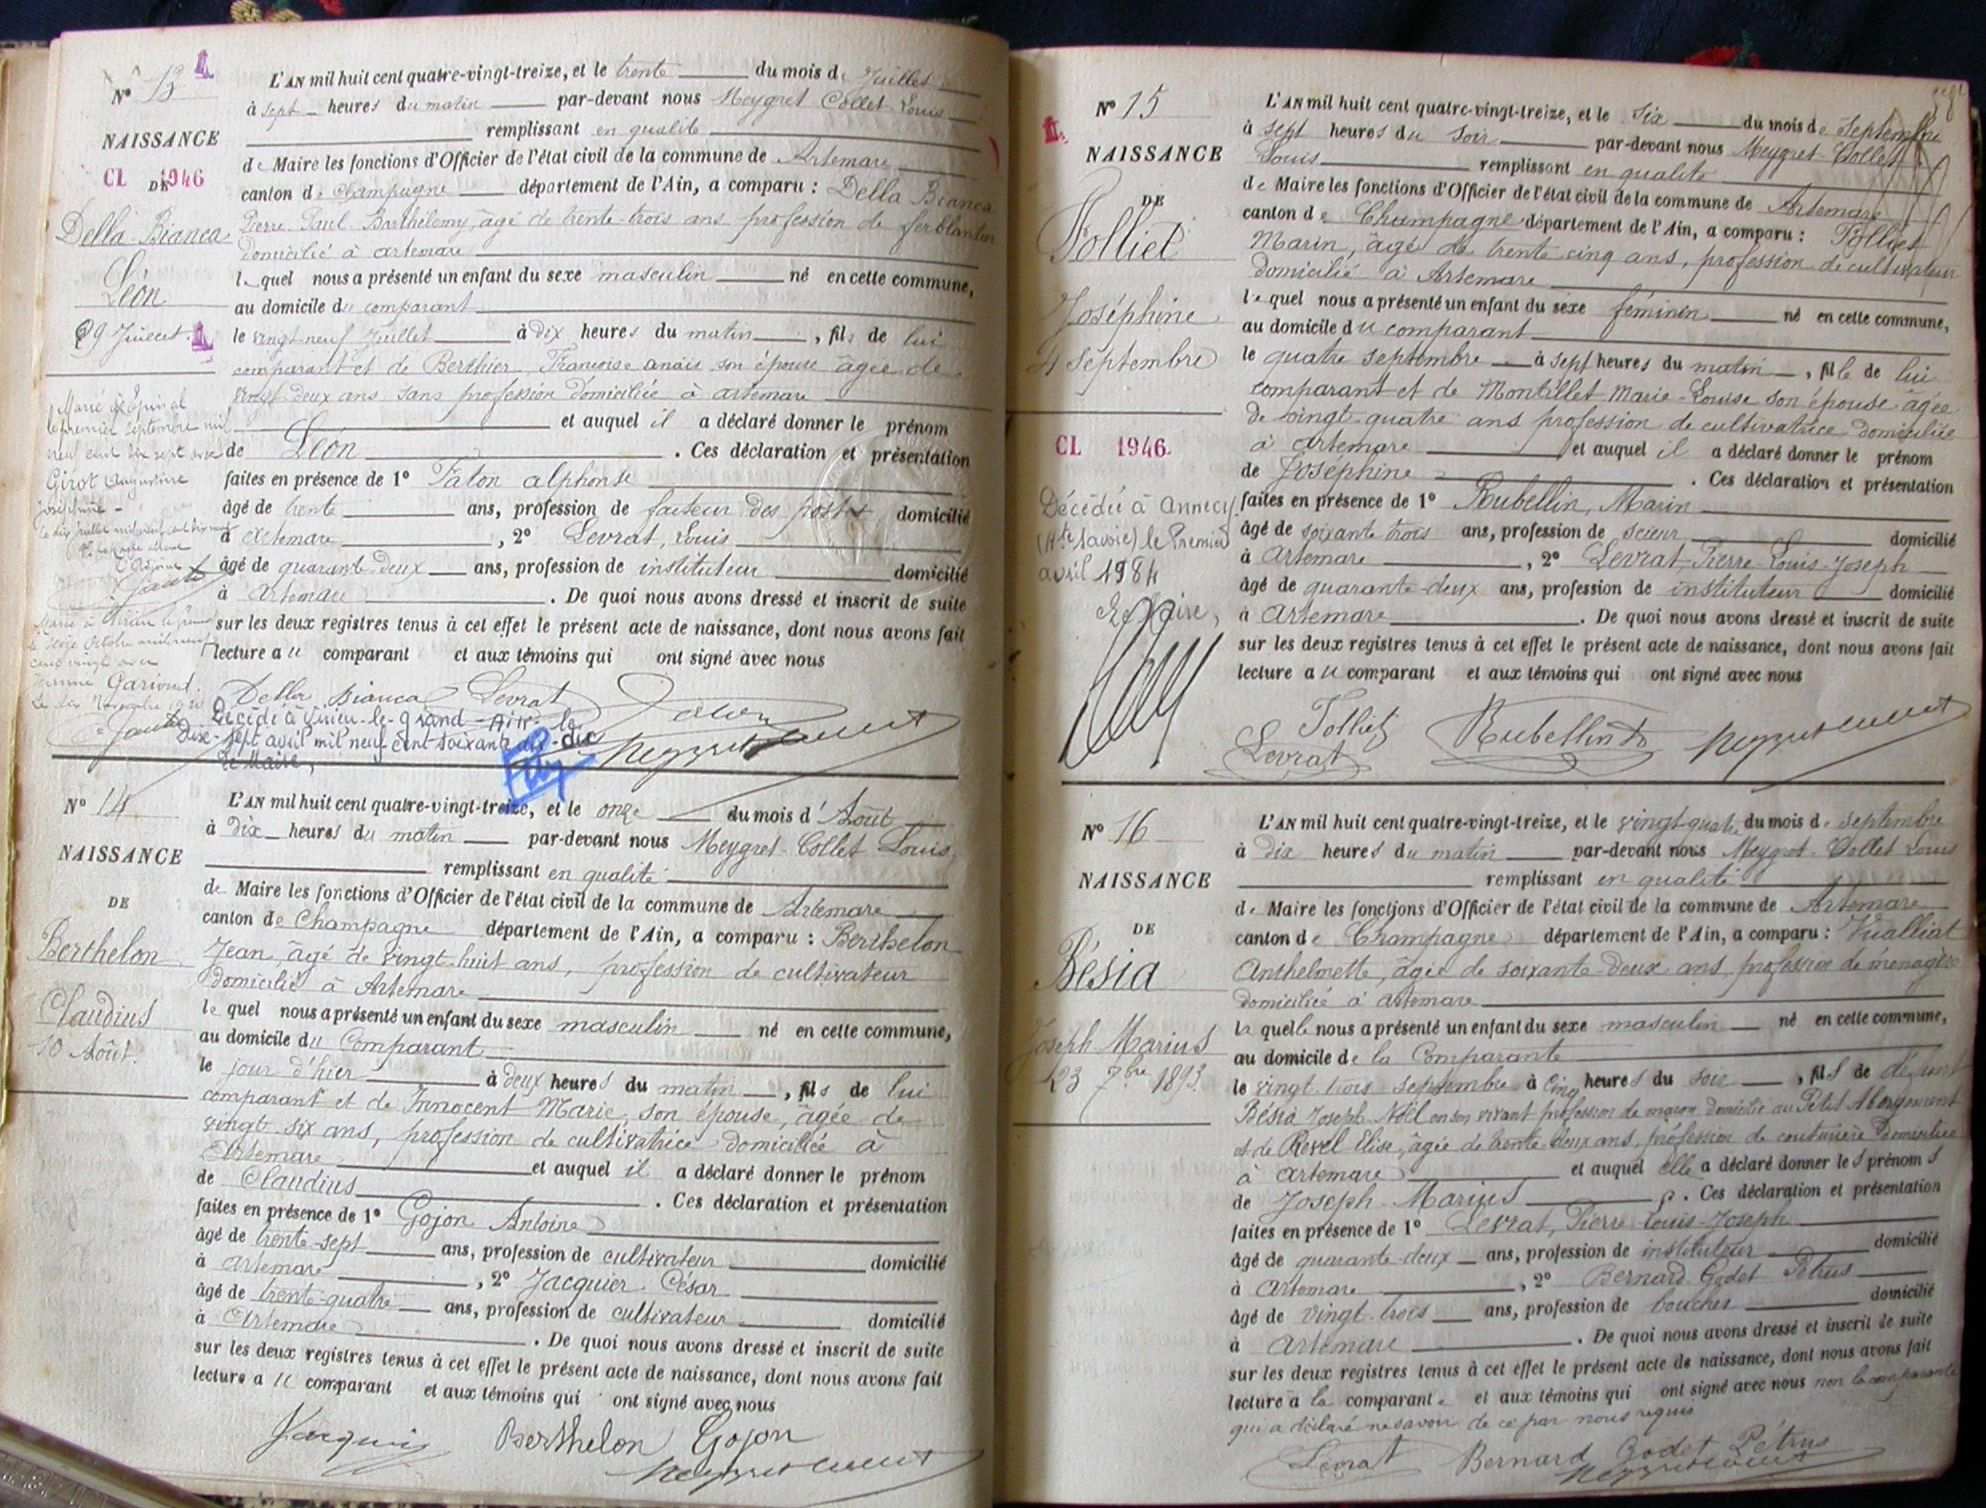 Nº 13
NAISSANCE
DE
CL 1946
Della Bianca
Léon
29 Juillet
Marié à Epinal
le premier septembre mil
neuf cent dix sept avec
Girot Augustine
Joséphine
L'AN mil huit cent quatre-vingt-treize, et le trente du mois de Juillet
à sept heures du matin par-devant nous Meygret Collet Louis
remplissant en qualité
de Maire les fonctions d'Officier de l'état civil de la commune de Artemare
canton de Champagne département de l'Ain, a comparu : Della Bianca
Pierre Paul Barthélemy, âgé de trente-trois ans profession de ferblantier
domicilié à artemare
lequel nous a présenté un enfant du sexe masculin né en cette commune,
au domicile du comparant
le vingt-neuf Juillet à dix heures du matin, fils de lui
comparant et de Berthier Françoise anaïs son épouse âgée de
vingt deux ans sans profession domiciliée à artemare
et auquel il a déclaré donner le prénom
de Léon. Ces déclaration et présentation
faites en présence de 1º Falon alphonse
âgé de trente ans, profession de facteur des postes domicilié
à artemare, 2º Levrat, Louis
âgé de quarante-deux ans, profession de instituteur domicilié
à artemare. De quoi nous avons dressé et inscrit de suite
sur les deux registres tenus à cet effet le présent acte de naissance, dont nous avons fait
lecture au comparant et aux témoins qui ont signé avec nous
Della Bianca Levrat
Décédé à Virieu-le-Grand - Ain - le
Dix-sept avril mil neuf cent soixante dix-
Le Maire,
Nº 14
NAISSANCE
DE
Berthelon
Claudius
10 Août.
L'AN mil huit cent quatre-vingt-treize, et le onze du mois d'Août
à dix heures du matin par-devant nous Meygret-Collet Louis
remplissant en qualité
de Maire les fonctions d'Officier de l'état civil de la commune de Artemare
canton de Champagne département de l'Ain, a comparu : Berthelon
Jean, âgé de vingt-huit ans, profession de cultivateur
domicilié à Artemare
lequel nous a présenté un enfant du sexe masculin né en cette commune,
au domicile du Comparant
le jour d'hier à deux heures du matin, fils de lui
comparant et de Innocent Marie, son épouse, âgée de
vingt-six ans, profession de cultivatrice domiciliée à
Artemare et auquel il a déclaré donner le prénom
de Claudius. Ces déclaration et présentation
faites en présence de 1º Gojon Antoine
âgé de trente-sept ans, profession de cultivateur domicilié
à artemare, 2º Jacquier César
âgé de trente-quatre ans, profession de cultivateur domicilié
à Artemare. De quoi nous avons dressé et inscrit de suite
sur les deux registres tenus à cet effet le présent acte de naissance, dont nous avons fait
lecture au comparant et aux témoins qui ont signé avec nous
Berthelon Gojon
Nº 15
NAISSANCE
DE
Polliet
Joséphine
4 Septembre
CL 1946
Décédée à Annecy
(Hte Savoie) le Premier
avril 1984
Le Maire,
L'AN mil huit cent quatre-vingt-treize, et le Six du mois de Septembre
à sept heures du soir par-devant nous Meygret-Collet
Louis remplissant en qualité
de Maire les fonctions d'Officier de l'état civil de la commune de Artemare
canton de Champagne département de l'Ain, a comparu : Polliet
Marin, âgé de trente cinq ans, profession de cultivateur
domicilié à Artemare
lequel nous a présenté un enfant du sexe féminin né en cette commune,
au domicile du comparant
le quatre septembre à sept heures du matin, fille de lui
comparant et de Montillet Marie-Louise son épouse âgée
de vingt-quatre ans profession de cultivatrice domiciliée
à artemare et auquel il a déclaré donner le prénom
de Joséphine. Ces déclaration et présentation
faites en présence de 1º Rubellin, Marin
âgé de soixante trois ans, profession de scieur domicilié
à Artemare, 2º Levrat, Pierre-Louis-Joseph
âgé de quarante-deux ans, profession de instituteur domicilié
à artemare. De quoi nous avons dressé et inscrit de suite
sur les deux registres tenus à cet effet le présent acte de naissance, dont nous avons fait
lecture au comparant et aux témoins qui ont signé avec nous
Polliet
Levrat Rubellin
Nº 16
NAISSANCE
DE
Bésia
Joseph Marius
23 7bre 1893
L'AN mil huit cent quatre-vingt-treize, et le vingt-quatre du mois de septembre
à dix heures du matin par-devant nous Meygret-Collet Louis
remplissant en qualité
de Maire les fonctions d'Officier de l'état civil de la commune de Artemare
canton de Champagne département de l'Ain, a comparu : Vualliat
Anthelmette, âgée de soixante deux ans, profession de ménagère
domiciliée à artemare
laquelle nous a présenté un enfant du sexe masculin né en cette commune,
au domicile de la Comparante
le vingt trois septembre à cinq heures du soir, fils de défunt
Bésia Joseph Noël en son vivant profession de maçon domicilié au Petit Abergement
et de Revel Elise, âgée de trente-deux ans, profession de couturière domiciliée
à artemare et auquel elle a déclaré donner les prénoms
de Joseph-Marius. Ces déclaration et présentation
faites en présence de 1º Levrat, Pierre-Louis-Joseph
âgé de quarante-deux ans, profession de instituteur domicilié
à artemare, 2º Bernard Godet Pétrus
âgé de vingt-trois ans, profession de boucher domicilié
à artemare. De quoi nous avons dressé et inscrit de suite
sur les deux registres tenus à cet effet le présent acte de naissance, dont nous avons fait
lecture à la comparante et aux témoins qui ont signé avec nous non la comparante
qui a déclaré ne savoir de ce par nous requis
Levrat Bernard Godet Pétrus